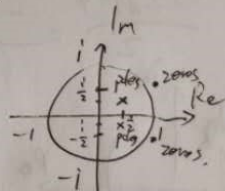 Im
i
1/2
poles
zeros
Re
-1
1/2
1
-1/2
poles
zeros.
-i